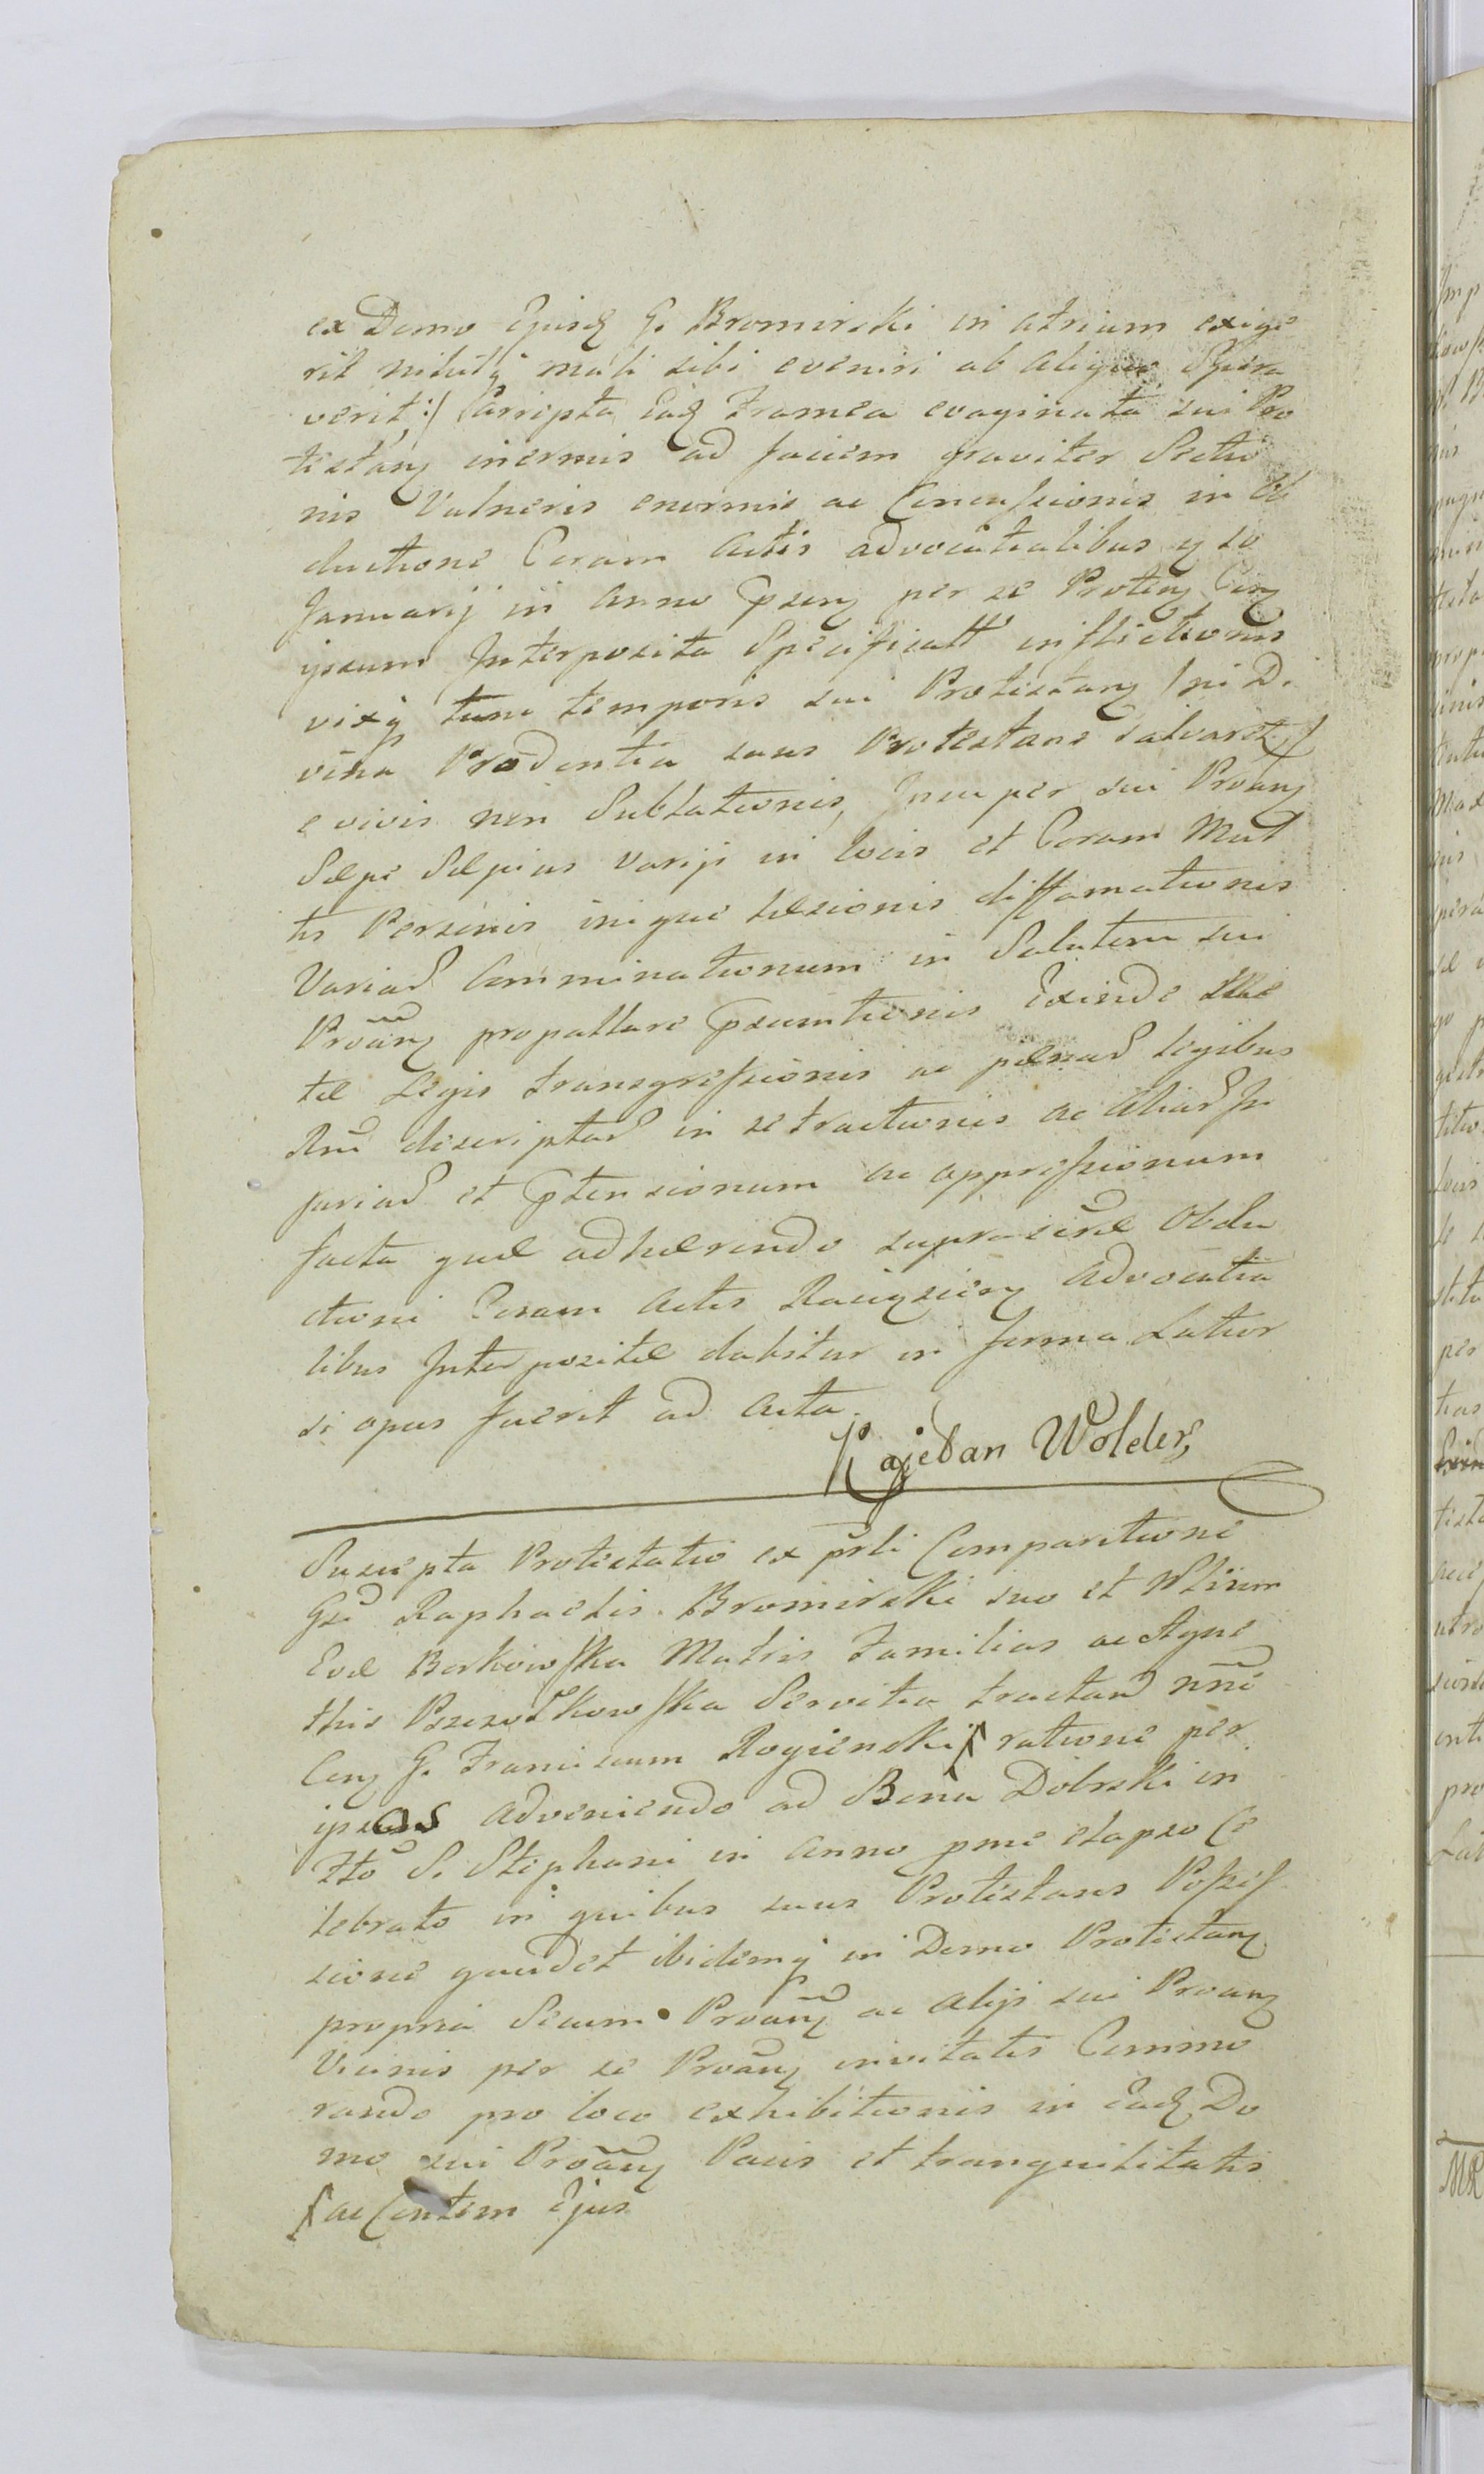 ex Domo Ejusd G. Bromirski in atrium exige
rit nihilq mali sibi eveniri ab aliquo Spera
verit :/ Parrepta Ead Framea evaginata sui Pro
testang inermis ad faciem graviter Sectio
nis Vulneris enormis ac Concussionis in Ob
ductione Coram Actis advocatialibus
Januarij in Anno pseng per se Proteng Cong
ipsum Interposita Specificatt inflictionis
vixq tunc temporis sui Protestang /ni Di
vina Prodentia suus Protestans salvaret/
e vivis non Sublationis, Insuper sui Proang
Sæpe Sæpius varijs in locis et Coram Mul
tis Personis inique læsionis diffamationis
Variar Comminationum in Salutem sui
Proang propallare psumtionis Exinde
tæ Legis transgressionis ac pænar legibus
Rni descriptar in se tractionis ac Aliar In
juriar et ptensionum ac oppressionum
facta quæ adhærendo suprascræ Obdu
ctioni Coram Actis Raciązieng Advocatia
libus Interpositæ dabitur in forma Latior
si opus fuerit ad Acta.
Kajetan Wolder
Suscepta Protestatio ex prli Comparitione
Gsi Raphaelis Bromirski suo et
Evæ Borkowska Matris Familias ac Agne
this Servitia tractan nne
Cong G. Franciscum Rogienski ratione per
ipsos adveniendo ad Bona Dobrski in
Ftto S. Stephani in Anno pme elapso Ce
lebrato in quibus suus Protestans Possess
sione gaudet ibidemq in Domo Protestang
propria Secum Proang ac alijs sui Proang
Vicinis per se Proang invitatis Commo
rando pro loco exhibitionis in Ead Do
mo sui Proang Pacis et tranquilitatis
ac Contem Ejus